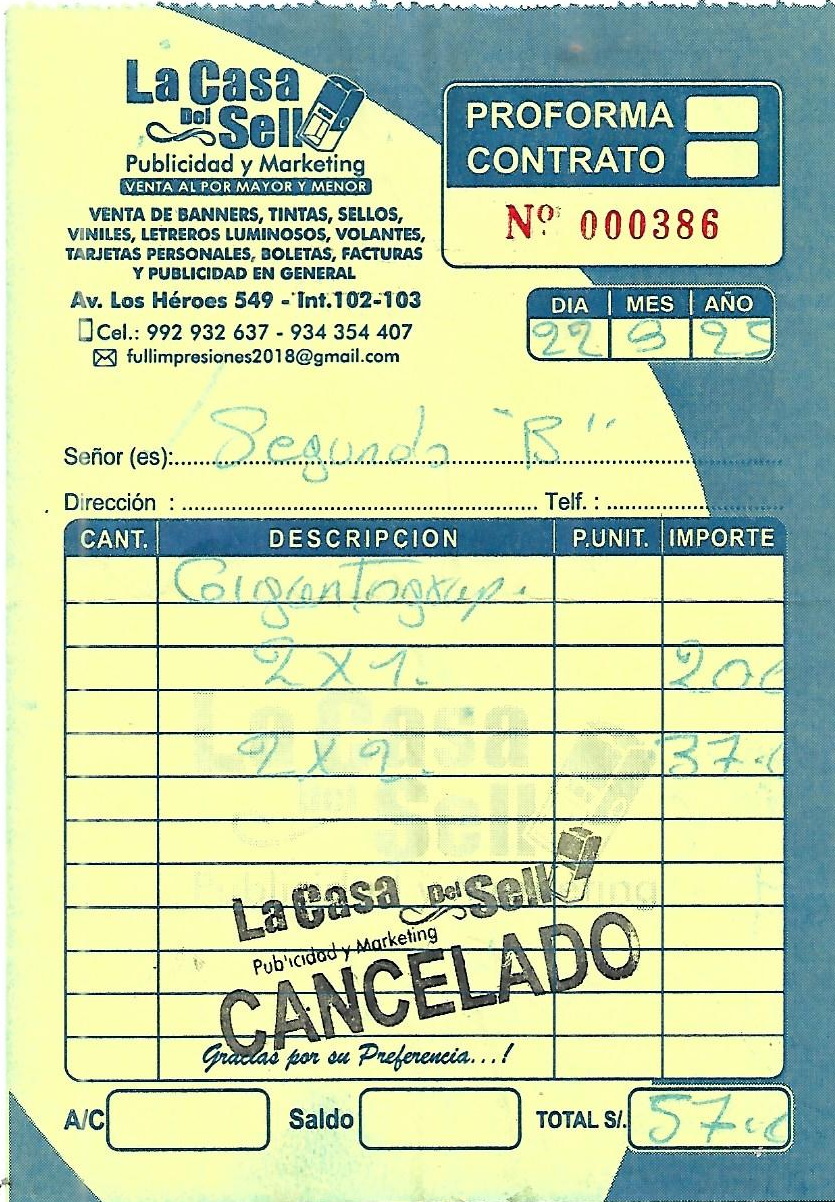 La Casa
Del Sell
Publicidad y Marketing
VENTA AL POR MAYOR Y MENOR
VENTA DE BANNERS, TINTAS, SELLOS,
VINILES, LETREROS LUMINOSOS, VOLANTES,
TARJETAS PERSONALES, BOLETAS, FACTURAS
Y PUBLICIDAD EN GENERAL
Av. Los Héroes 549 - Int.102-103
Cel.: 992 932 637 - 934 354 407
fullimpresiones2018@gmail.com
PROFORMA
CONTRATO
Nº 000386
DIA MES AÑO
22 9 25
Señor (es): Segundo "B"
Dirección : Telf. :
CANT. DESCRIPCION P.UNIT. IMPORTE
Gigantograp.
2 x 1. 20.0
2 x 2. 37.0
La Casa
Del Sell
La Casa Del Sell
Publicidad y Marketing
CANCELADO
Gracias por su Preferencia...!
A/C Saldo TOTAL S/. 57.0